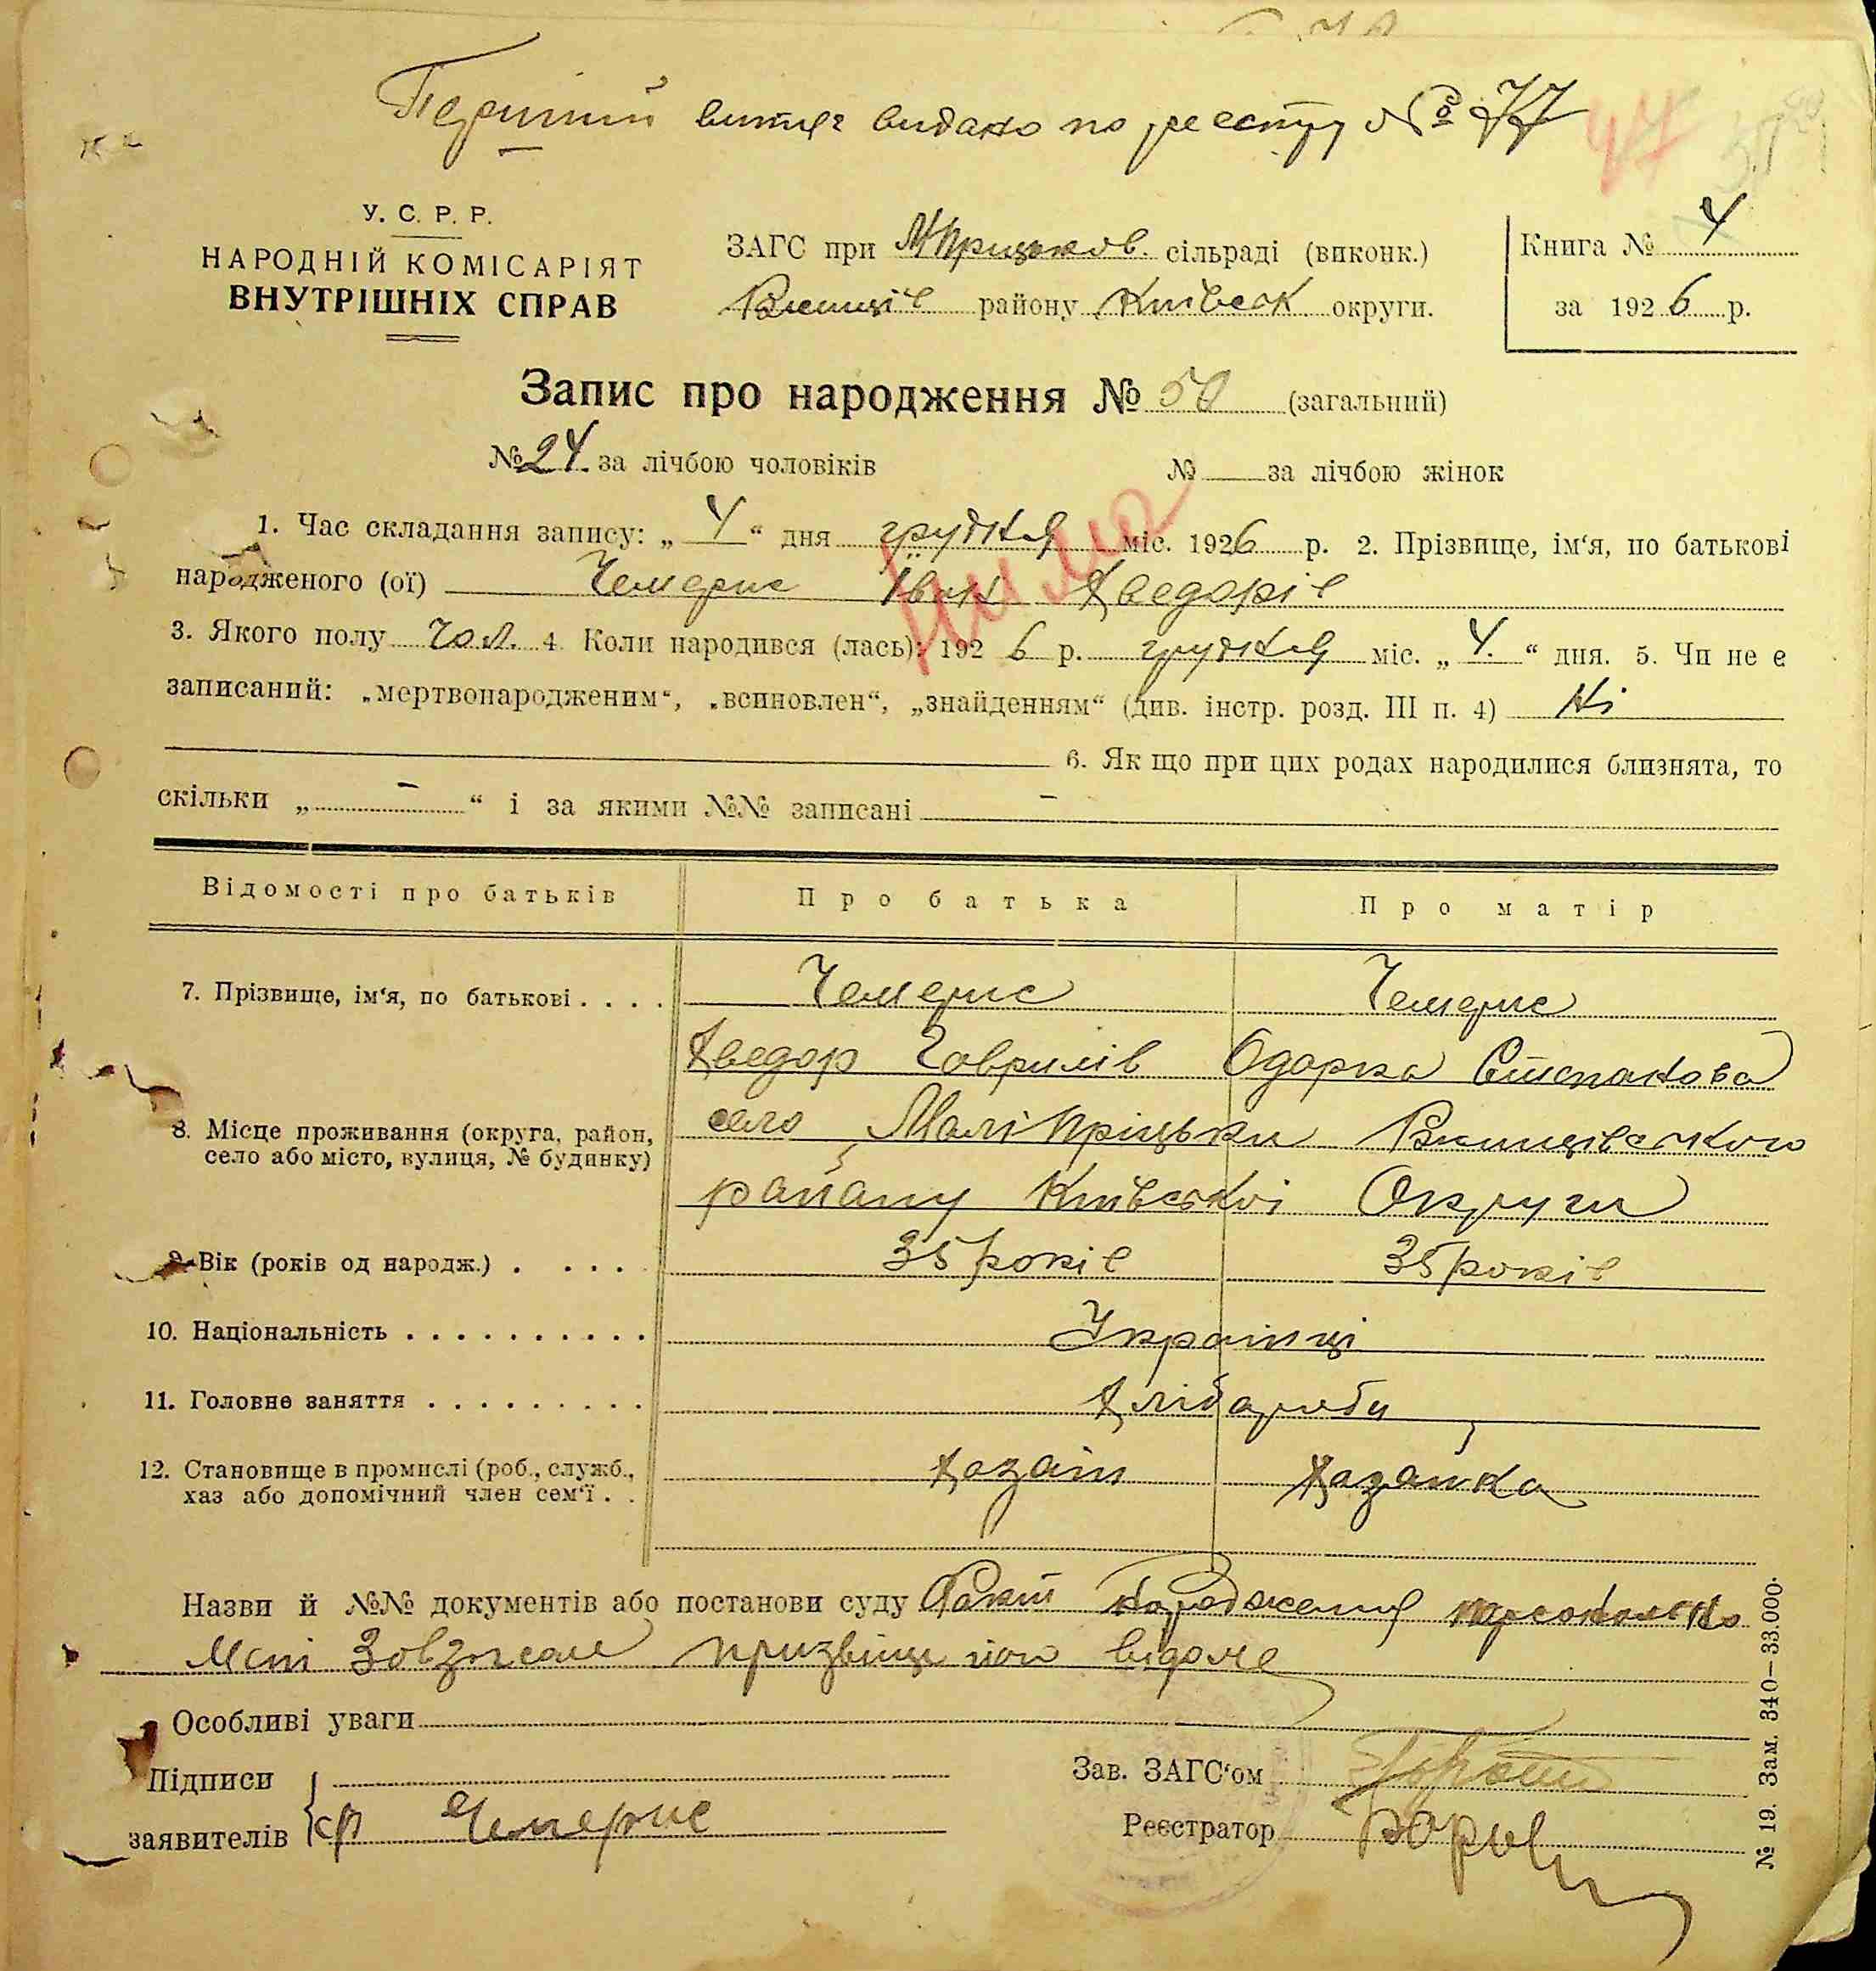 Перший витяг видано по реєстру № 77
47
У. С. Р. Р.
НАРОДНІЙ КОМІСАРІЯТ
ВНУТРІШНІХ СПРАВ
ЗАГС при М Пріцьков. сільраді (виконк.)
району Київськ округи.
Книга № 4
за 1926 р.
Запис про народження № 50 (загальний)
№ 24 за лічбою чоловіків № — за лічбою жінок
1. Час складання запису: „ 4 “ дня грудня міс. 1926 р. 2. Прізвище, ім‘я, по батькові
народженого (ої) Чемерис Іван Хведорів
3. Якого полу чол. 4. Коли народився (лась): 1926 р. грудня міс. „ 4. “ дня. 5. Чи не є
записаний: „мертвонародженим“, „всиновлен“, „знайденням“ (див. інстр. розд. III п. 4) Ні
6. Як що при цих родах народилися близнята, то
скільки „ – “ і за якими №№ записані –
Відомості про батьків Про батька Про матір
7. Прізвище, ім‘я, по батькові . . . . Чемерис Чемерис
Хведор Гаврилів Одарка Степанова
8. Місце проживання (округа, район, село Малі Пріцьки Ржищівського
село або місто, вулиця, № будинку)
району Київської Округи
9. Вік (років од народж.) . . . . 35 років 35 років
10. Національність . . . . . . . . . . Українці
11. Головне заняття . . . . . . . . . Хлібароби
12. Становище в промислі (роб., служб., Хазаїн Хазайка
хаз або допомічний член сем‘ї . .
Назви й №№ документів або постанови суду Факт народження персонально
Мені призвіще його відоме
Особливі уваги
Підписи
заявителів Чемерис
Зав. ЗАГС‘ом
Реєстратор
№ 19. Зам. 340—33.000.